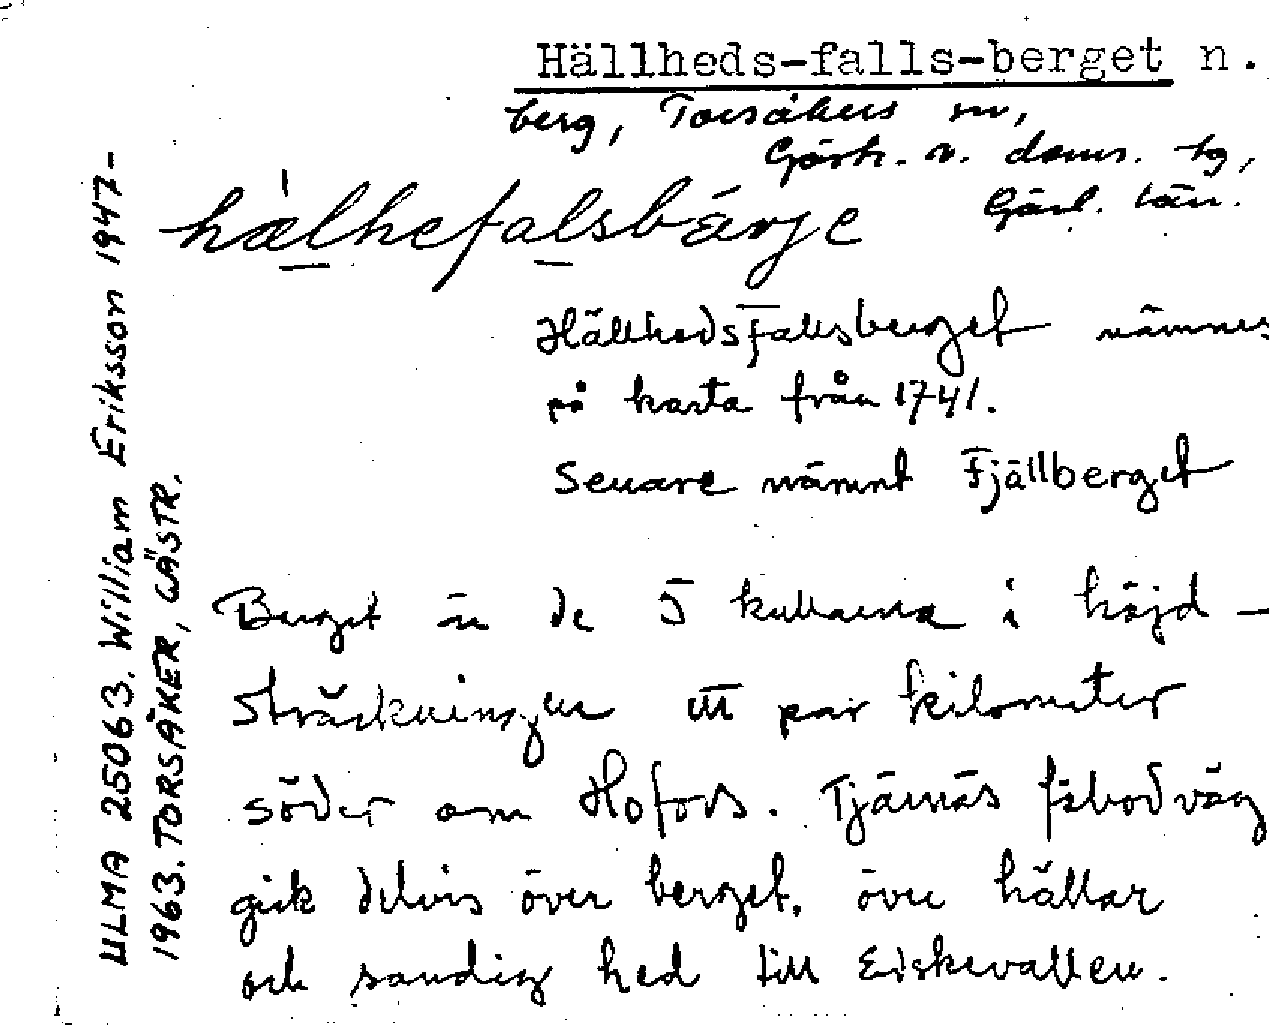 Hällheds-falls-berget n.
berg, Torsåkers sn,
Gästr. v. doms. tg,
Gävl. län.
hælhefalsbárje
Hällhedsfallsberget nämnes
på karta från 1741.
Senare nämnt Fjällberget
Berget är de 5 kullarna i höjd-
sträckningen ett par kilometer
söder om Hofors. Tjärnäs fäbodväg
gick delvis över berget, över hällar
och sandig hed till Edskevallen.
ULMA 25063. William Eriksson 1947-
1963. TORSÅKER, GÄSTR.